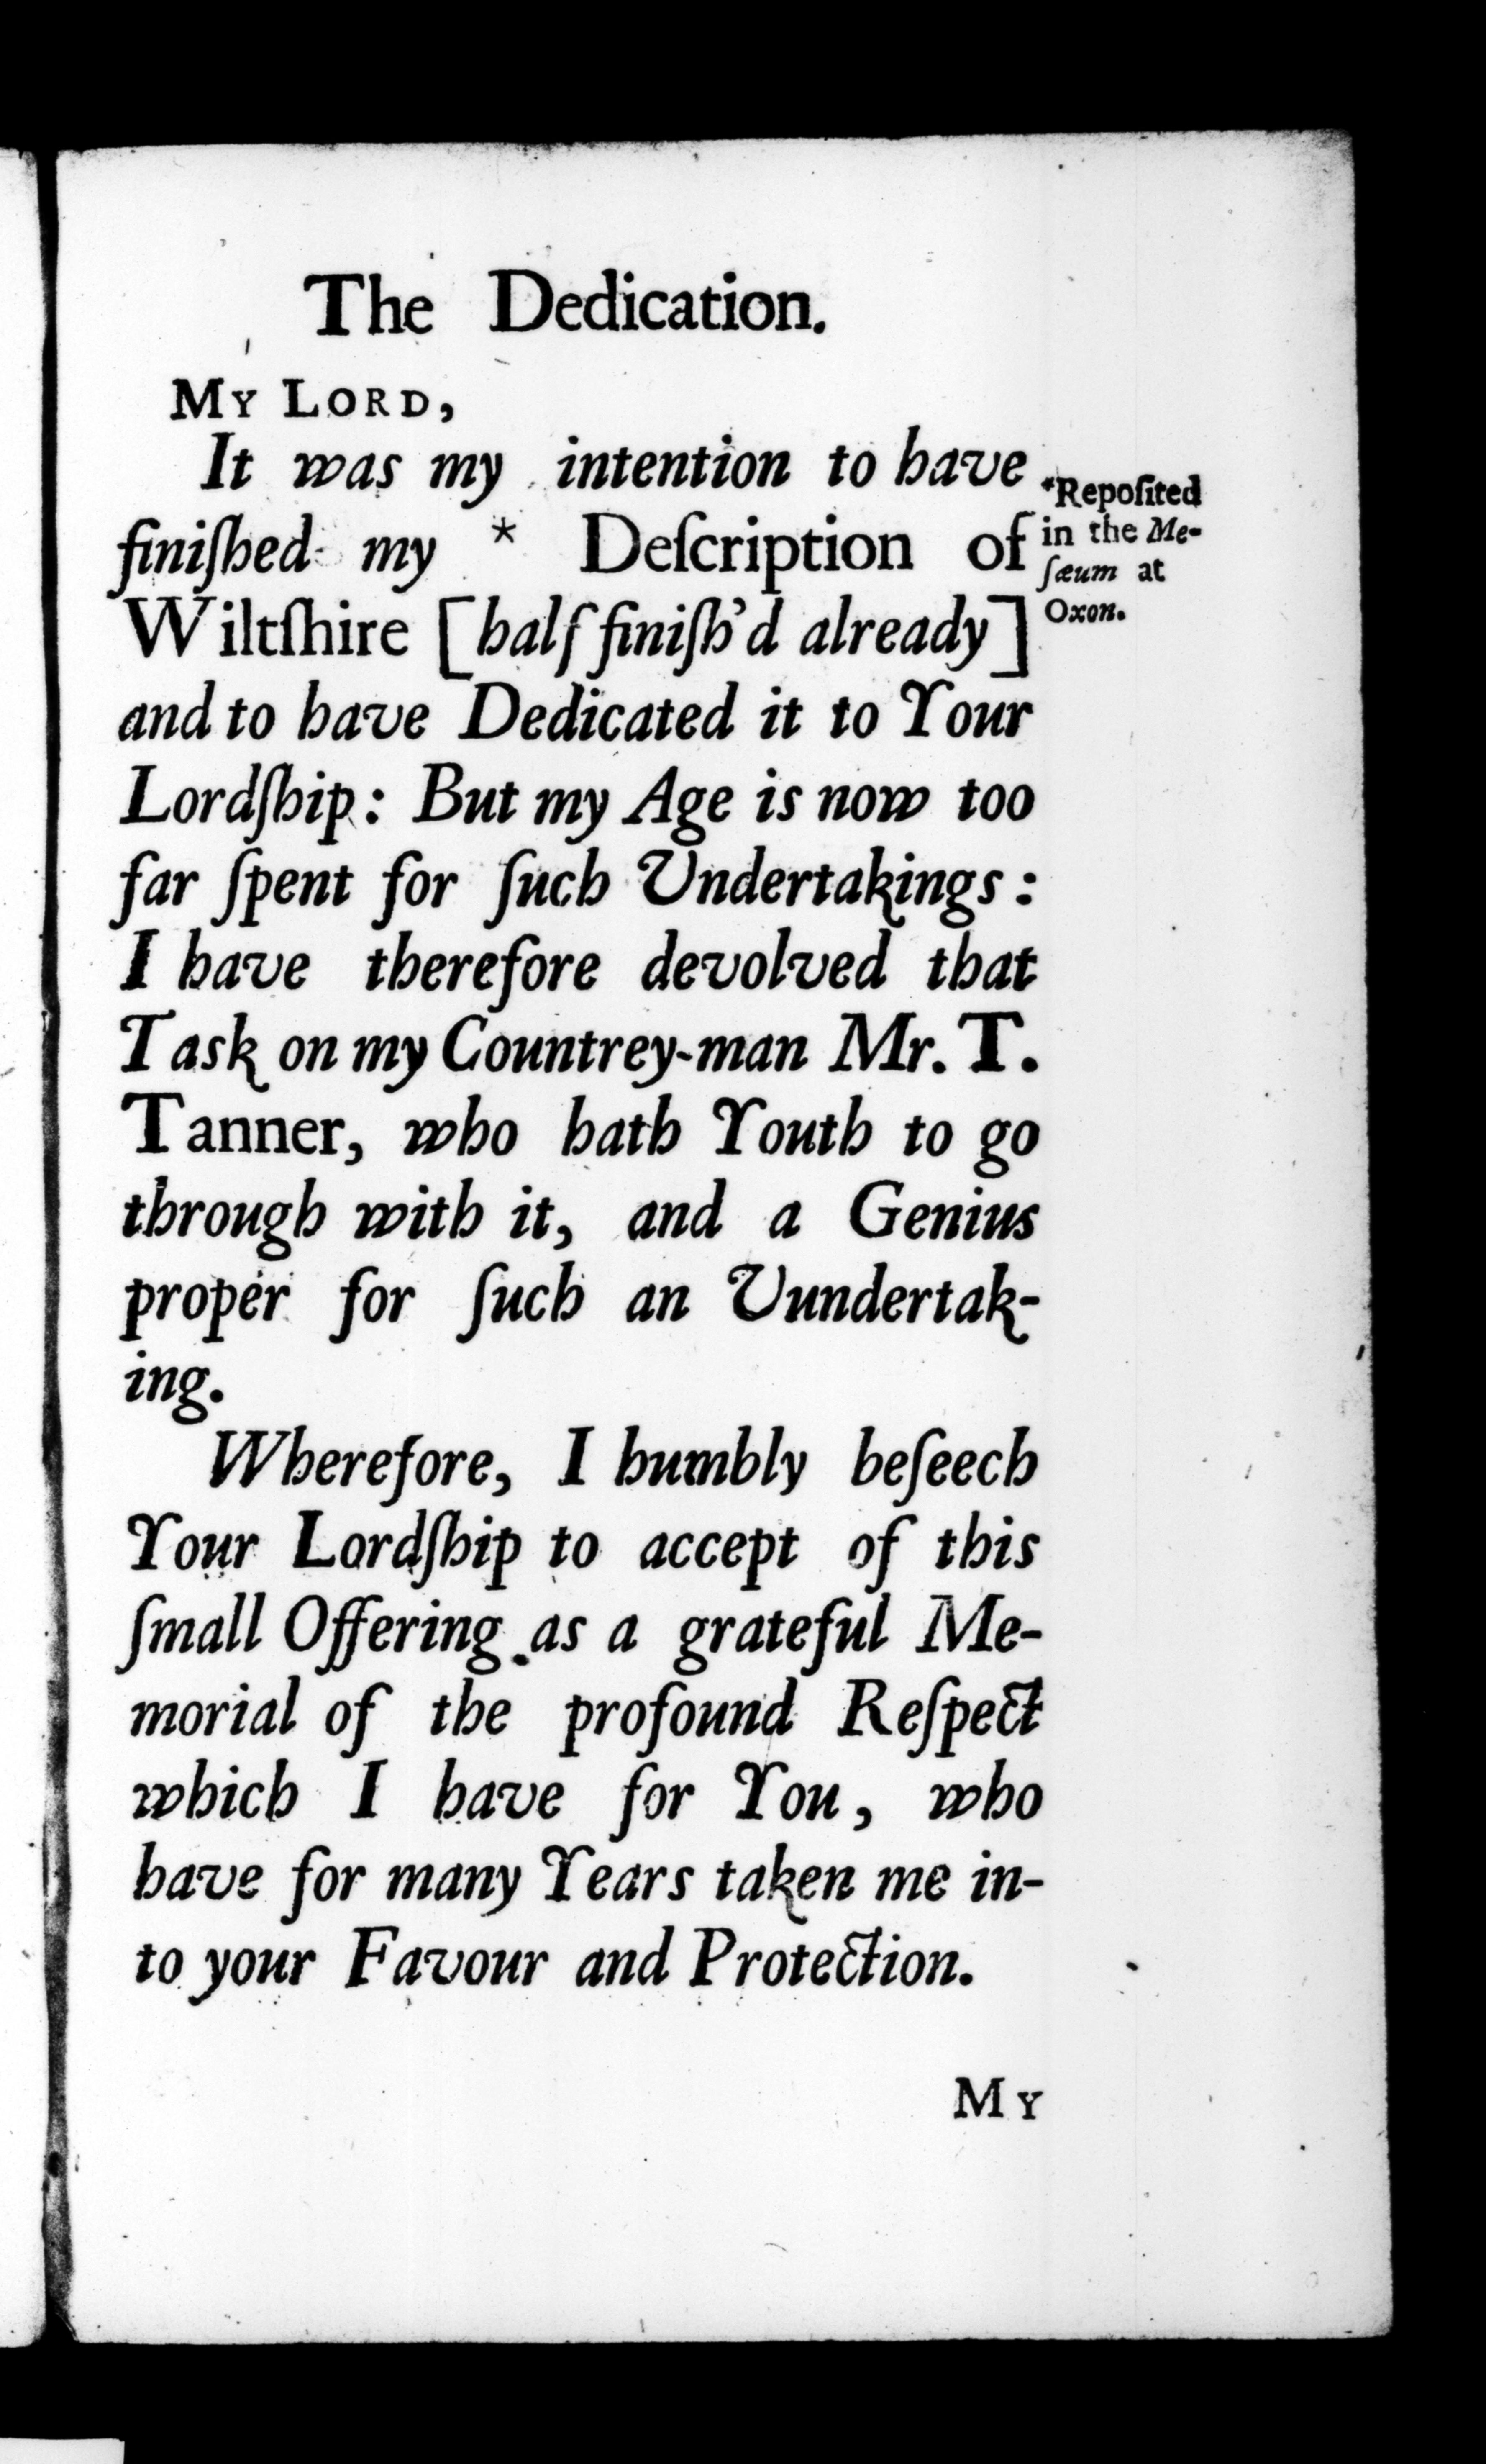 The Dedication.
MY LORD,
It was my intention to have
finiſhed my * Deſcription of
Wiltſhire [half finiſh'd already]
and to have Dedicated it to Your
Lordſhip: But my Age is now too
far ſpent for ſuch Undertakings:
I have therefore devolved that
Task on my Countrey-man Mr. T.
Tanner, who hath Youth to go
through with it, and a Genius
proper for ſuch an Uundertak-
ing.
Wherefore, I humbly beſeech
Your Lordſhip to accept of this
ſmall Offering as a grateful Me-
morial of the profound Reſpect
which I have for You, who
have for many Years taken me in-
to your Favour and Protection.
MY
*Repoſited
in the Me-
ſæum at
Oxon.